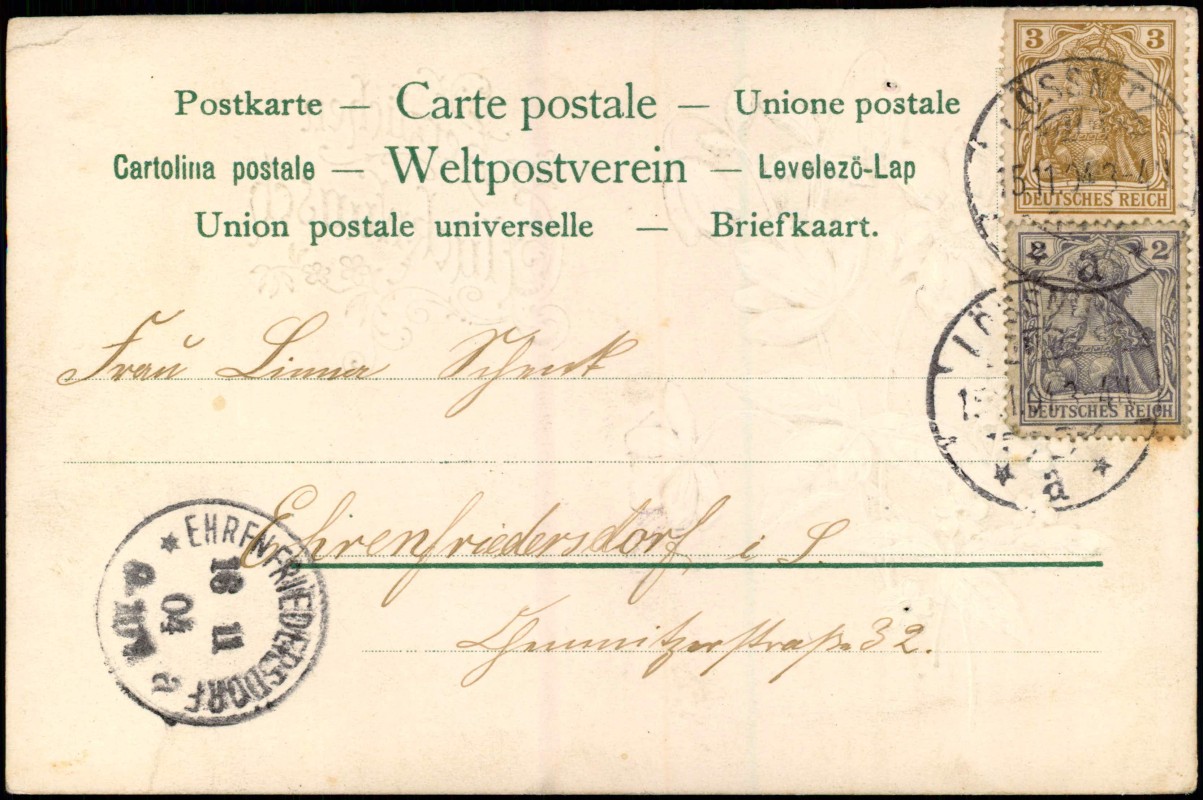 Postkarte — Carte postale — Unione postale
Cartolina postale — Weltpostverein — Levelezö-Lap
Union postale universelle — Briefkaart.
3 3
LÖSSNITZ
15.11.04.3-4N
DEUTSCHES REICH
a
2 2
LÖSSNITZ
DEUTSCHES REICH
a
Frau Linna Schenk
Ehrenfriedersdorf i S.
Chemnitzerstraße 32.
EHRENFRIEDERSDORF
16 11
04
a